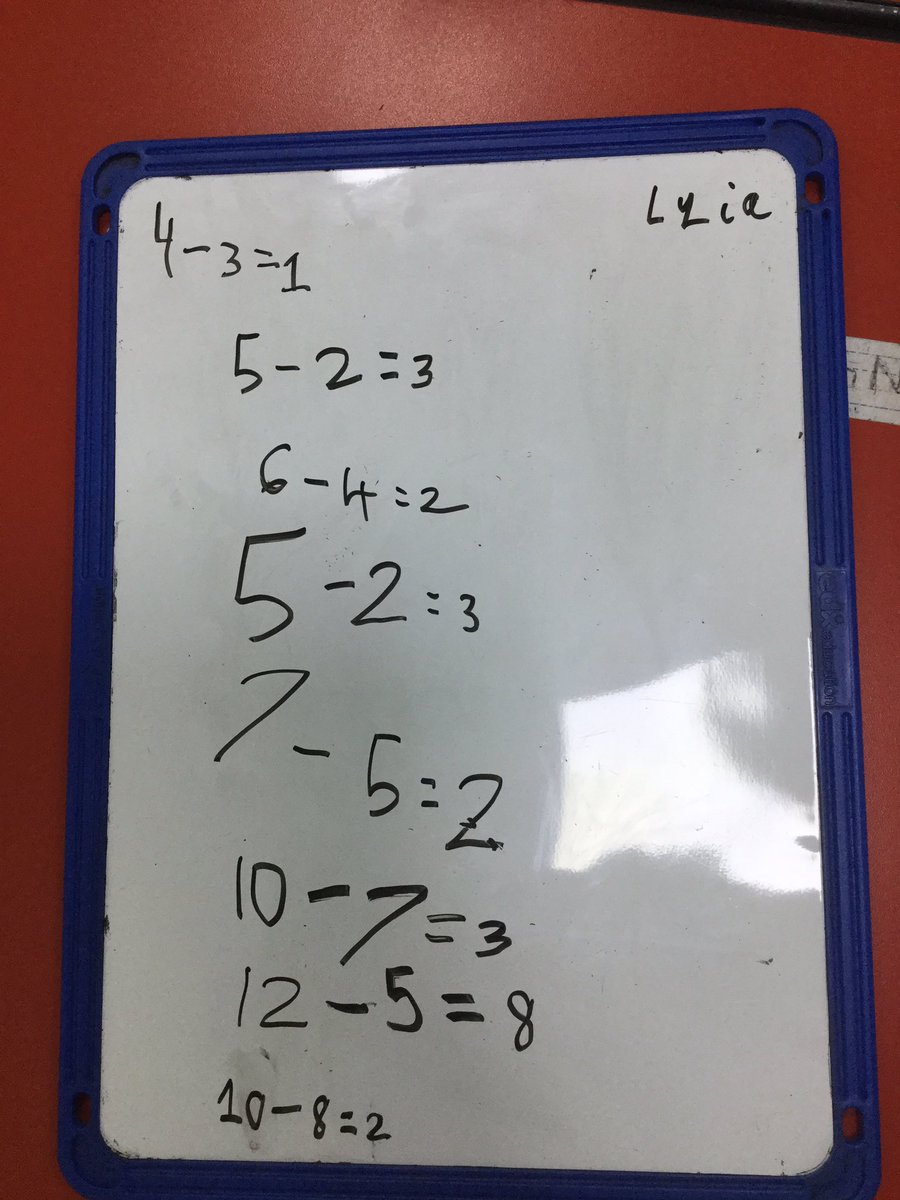 Lyia
4-3=1
5-2=3
6-4=2
5-2=3
7-5=2
10-7=3
12-5=8
10-8=2